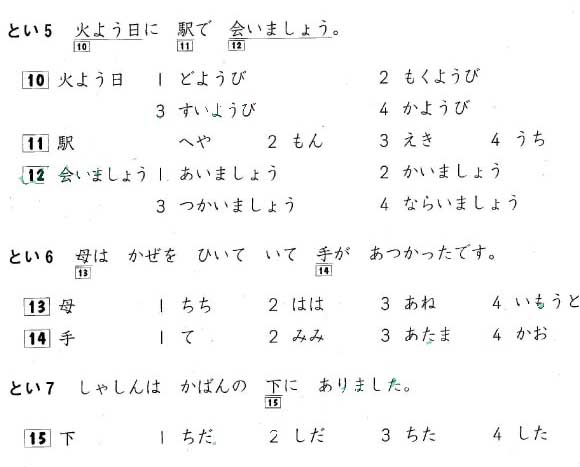 とい5 火よう日に 駅で 会いましょう。
10 11 12
10 火よう日 1 どようび 2 もくようび
3 すいようび 4 かようび
11 駅 へや 2 もん 3 えき 4 うち
12 会いましょう 1 あいましょう 2 かいましょう
3 つかいましょう 4 ならいましょう
とい6 母は かぜを ひいて いて 手が あつかったです。
13 14
13 母 1 ちち 2 はは 3 あね 4 いもうと
14 手 1 て 2 みみ 3 あたま 4 かお
とい7 しゃしんは かばんの 下に ありました。
15
15 下 1 ちだ 2 しだ 3 ちた 4 した